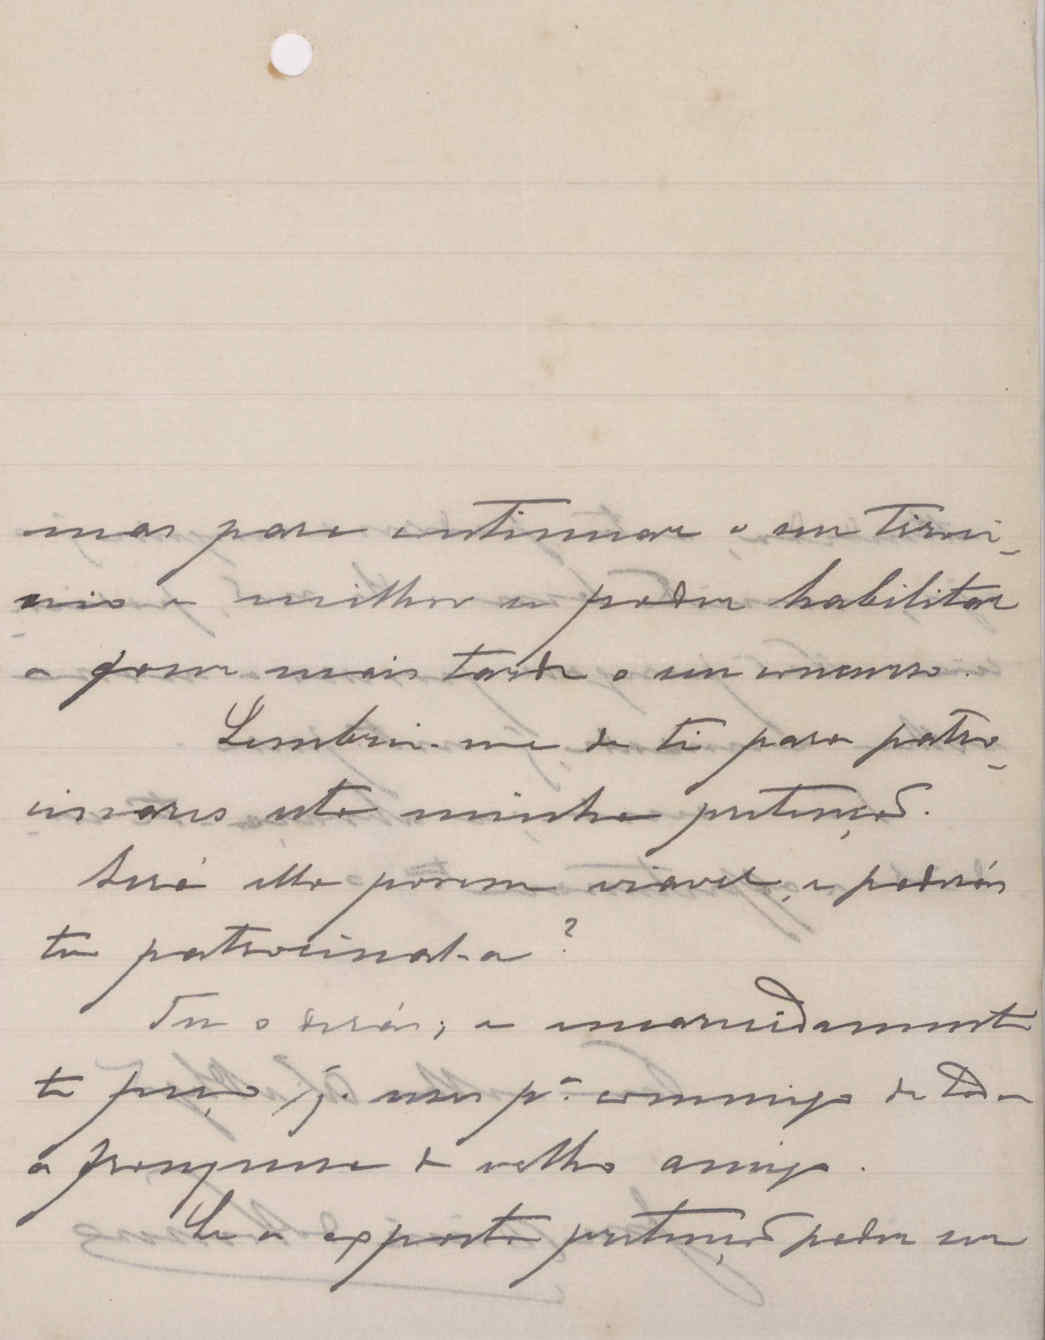 mas para continuar o seu tiroci-
nio e milhor se poder habilitar
a fazer mais tarde o seu concurso.
Lembrei-me de ti para patro-
cinares esta minha pretenção.
Será ella porem viavel, e poderás
tu patrocinal-a?
Tu o dirás; e encarecidamente
te peço q. uses pª. commigo de toda
a franqueza de velho amigo.
Se a exposta pretenção poder ser